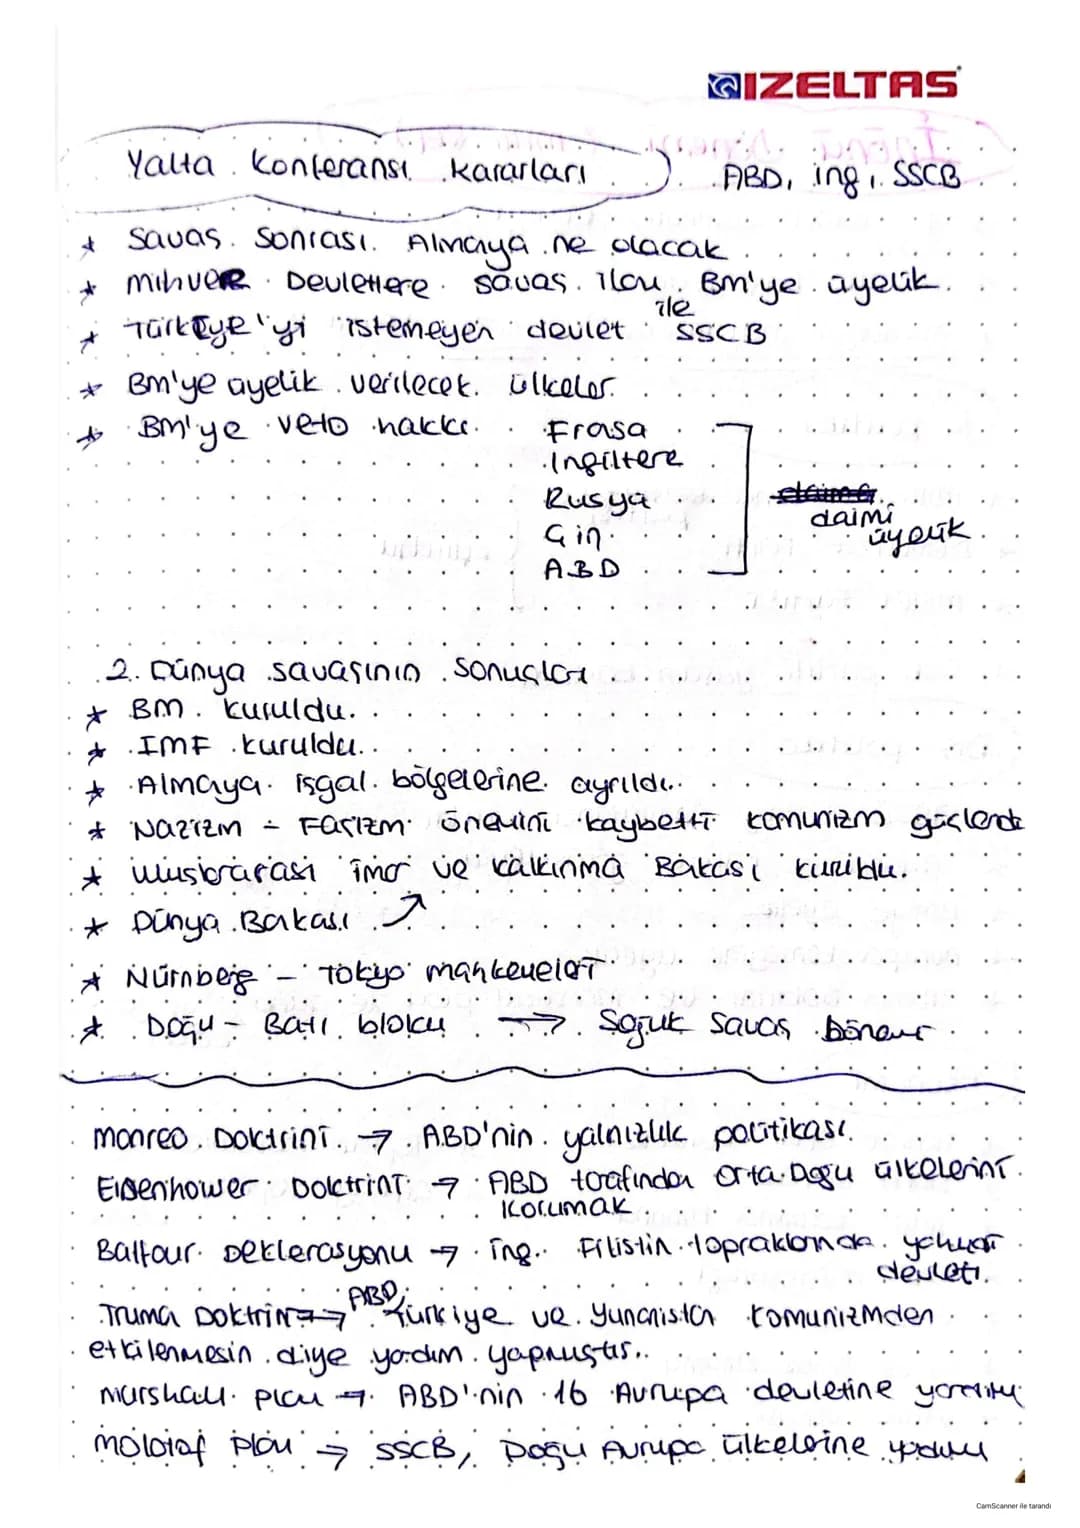 IZELTAS
Yalta Konferansı kararları ABD, ing, SSCB
* Savaş Sonrası Almaya ne olacak
* mihver Devletlere savaş ilanı ile Bm'ye üyelik
* Türkiye'yi istemeyen devlet SSCB
* Bm'ye üyelik verilecek ülkeler.
* Bm'ye veto hakkı Frasa
İngiltere
Rusya
Çin
ABD
daimi
üyelik
2. Dünya savaşının Sonuçları
* BM kuruldu.
* IMF kuruldu.
* Almaya işgal bölgelerine ayrıldı.
* Nazizm - Faşizm önemini kaybetti komunizm güçlendi
* uluslararası imar ve kalkınma Bakası kuruldu.
* Dünya Bakası
* Nürnberg - Tokyo mahkemeleri
* Doğu - Batı bloku → Soğuk Savaş dönemi
Monreo Doktrini → ABD'nin yalnızlık politikası.
Eisenhower Doktrini → ABD tarafından Orta Doğu ülkelerini
korumak
Balfour Deklerasyonu → ing. Filistin topraklarında yahudi
devleti.
Truma Doktrini → ABD, Türkiye ve Yunanistan komunizmden
etkilenmesin diye yardım yapmıştır.
Marshall Planı → ABD'nin 16 Avrupa devletine yardımı
Molotof Planı → SSCB, Doğu Avrupa ülkelerine yardımı
CamScanner ile tarandı